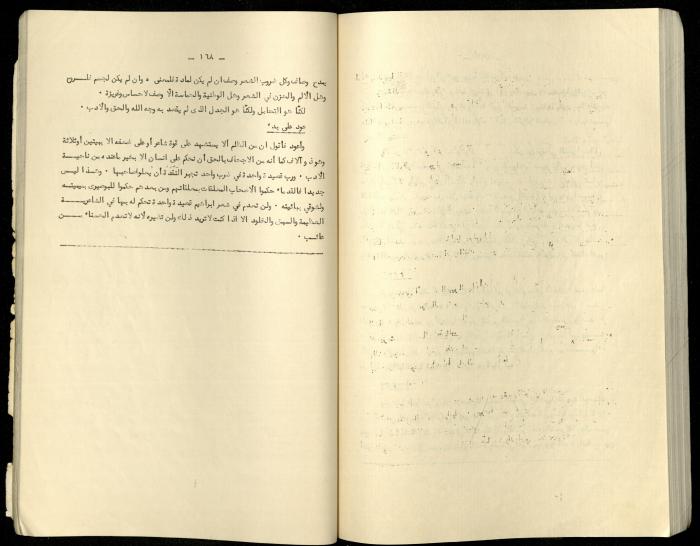 — ١٦٨ —
يمدح وصاف وكل ضروب الشعر وصف ان لم يكن لمادة فلمعنى ٠ وان لم يكن لجسم فلسرح
وهل الألم والحزن في الشعر وهل الوطنية والحماسة الا وصف لاحساس وغريزة ٠
لكنّا هو التحامل ولكنّا هو الجدل الذى لم يقصد به وجه الله والحق والأدب ٠
عود على بدء
وأعود فأقول ان من الظلم ألا يستشهد على قوة شاعر أو على ضعفه الا ببيتين أو ثلاثة
وهو ذو آلاف كما أنه من الاجحاف بالحق أن نحكم على انسان الا بخير ماعنده من ناحيـــة
الأدب ٠ ورب قصيدة واحدة في ضرب واحد تجبر النقدة أن يحلوا صاحبها ٠ وهذا ليس
جديدا فالقدماء حكموا لأصحاب المعلقات بمعلقاتهم ومن بعدهم حكموا للبوصيرى بميميته
ولشوقي ببائيته ٠ ولن تعدم في شعر ابراهيم قصيدة واحدة تحكم له بها في الشاعريـــة
العظيمة والسبق والخلود الا اذا كنت لا تريد ذلك ولن تضيره لأنه لا تعدم الحسناء مـــن
عائب ٠